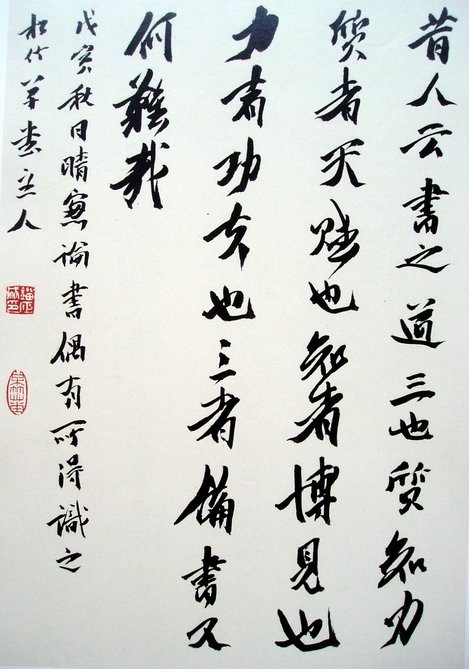 昔人云書之道三也質知力
質者天賦也知者博見也
力者功夫也三者備書又
何難哉
戊寅秋日晴窻論書偶有所得識之
松竹草堂主人